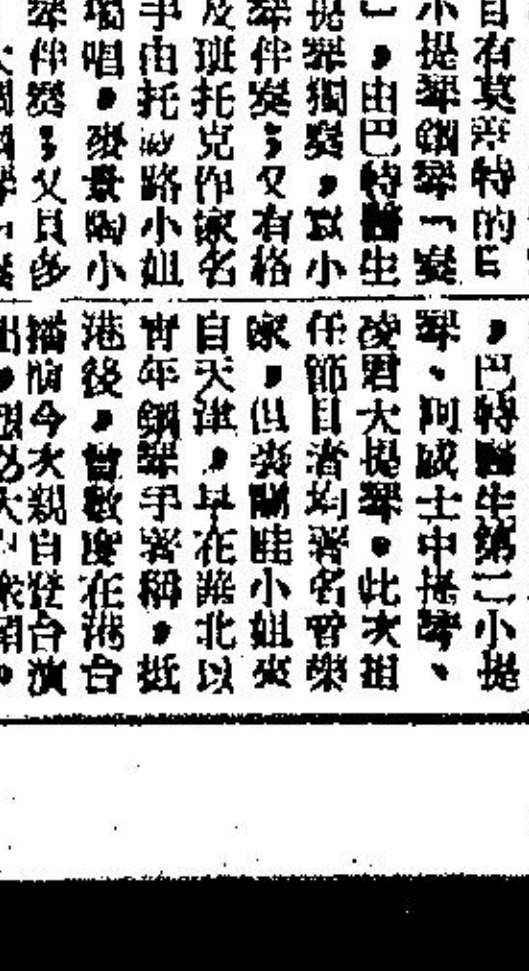 目有莫特的
小提琴鋼琴「奏
」，由巴特醫生
提琴獨奏，寇小
琴伴奏；又有格
及班托克作家名
手由托沙路小姐
獨唱，麥景陶小
琴伴奏；又貝多
，巴特醫生第二小提
琴、阿威士中提琴、
凌君大提琴。此次担
任節目者均著名音樂
家，但裘關哇小姐來
自天津，早在華北以
青年鋼琴手著稱，抵
港後，曾數度在港台
播演今次親自登台演